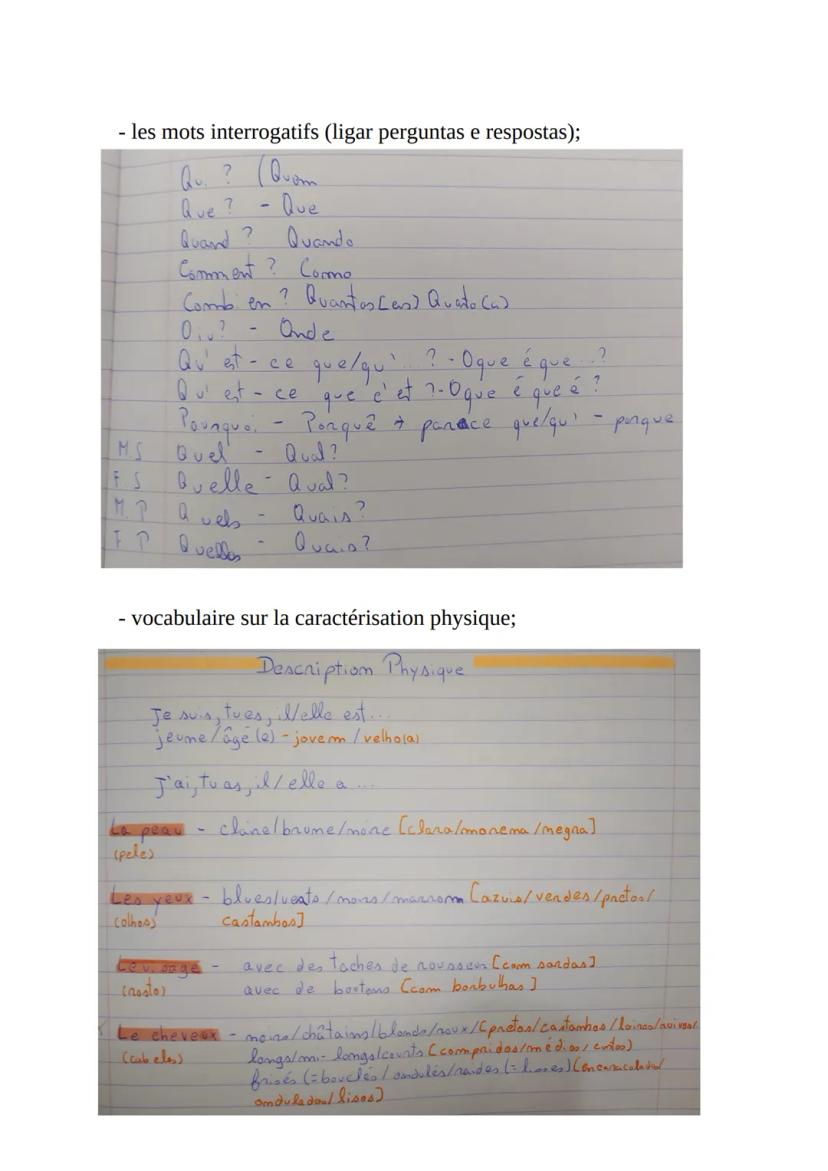 - les mots interrogatifs (ligar perguntas e respostas);
Qui ? (Quem
Que ? - Que
Quand ? Quando
Comment ? Como
Combien ? Quantos(as) Quato(a)
Oiu? - Onde
Qu'est-ce que/qu'...? - O que é que...?
Qu'est-ce que c'et ? - O que é que é ?
Pourquoi - Porquê → parace que/qu' - porque
M.S Quel - Qual?
F S Quelle - Qual?
M.P Quels - Quais?
F P Quelles - Quais?
- vocabulaire sur la caractérisation physique;
Description Physique
Je suis, tu es, il/elle est...
jeune/âgé(e) - jovem/velho(a)
J'ai, tu as, il/elle a ...
La peau - claire/brune/noire [clara/morena/negra]
(pele)
Les yeux - blues/verts/noirs/marronn [azuis/verdes/pretos/
(olhos) castanhos]
Le visage - avec des taches de rousseur [com sardas]
(rosto) avec de boutons [com borbulhas]
Le cheveux - noirs/châtains/blonds/roux/[pretos/castanhos/loiros/ruivos/
(cabelos) longs/mi-longs/courts (compridos/médios/curtos)
frisés (=bouclés/ondulés/raides (=lisses) (encaracolados/
ondulados/lisos)